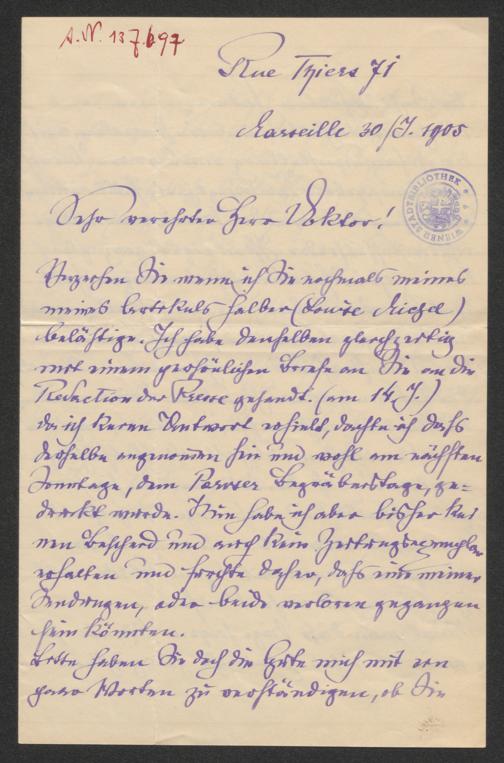 A.N. 137.697
Rue Thiers 71
Marseille 30/I. 1905
WIENER STADTBIBLIOTHEK
Sehr verehrter Herr Doktor!
Verzeihen Sie wenn ich Sie nochmals meines
meines Artikels halber (Louise Michel)
belästige. Ich habe denselben gleichzeitig
mit einem persönlichen Briefe an Sie an die
Redaction der Presse gesandt. (am 14. I.)
da ich keine Antwort erhielt, dachte ich dass
derselbe angenommen sei und wohl am nächsten
Sonntage, dem Pariser Begräbnistage, ge-
druckt werde. Nun habe ich aber bisher kei
nen Bescheid und auch kein Zeitungsexemplar
erhalten und fürchte daher, dass eine meiner
Sendungen, oder beide verloren gegangen
sein könnten.
Bitte haben Sie doch die Güte mich mit ein
paar Worten zu verständigen, ob Sie